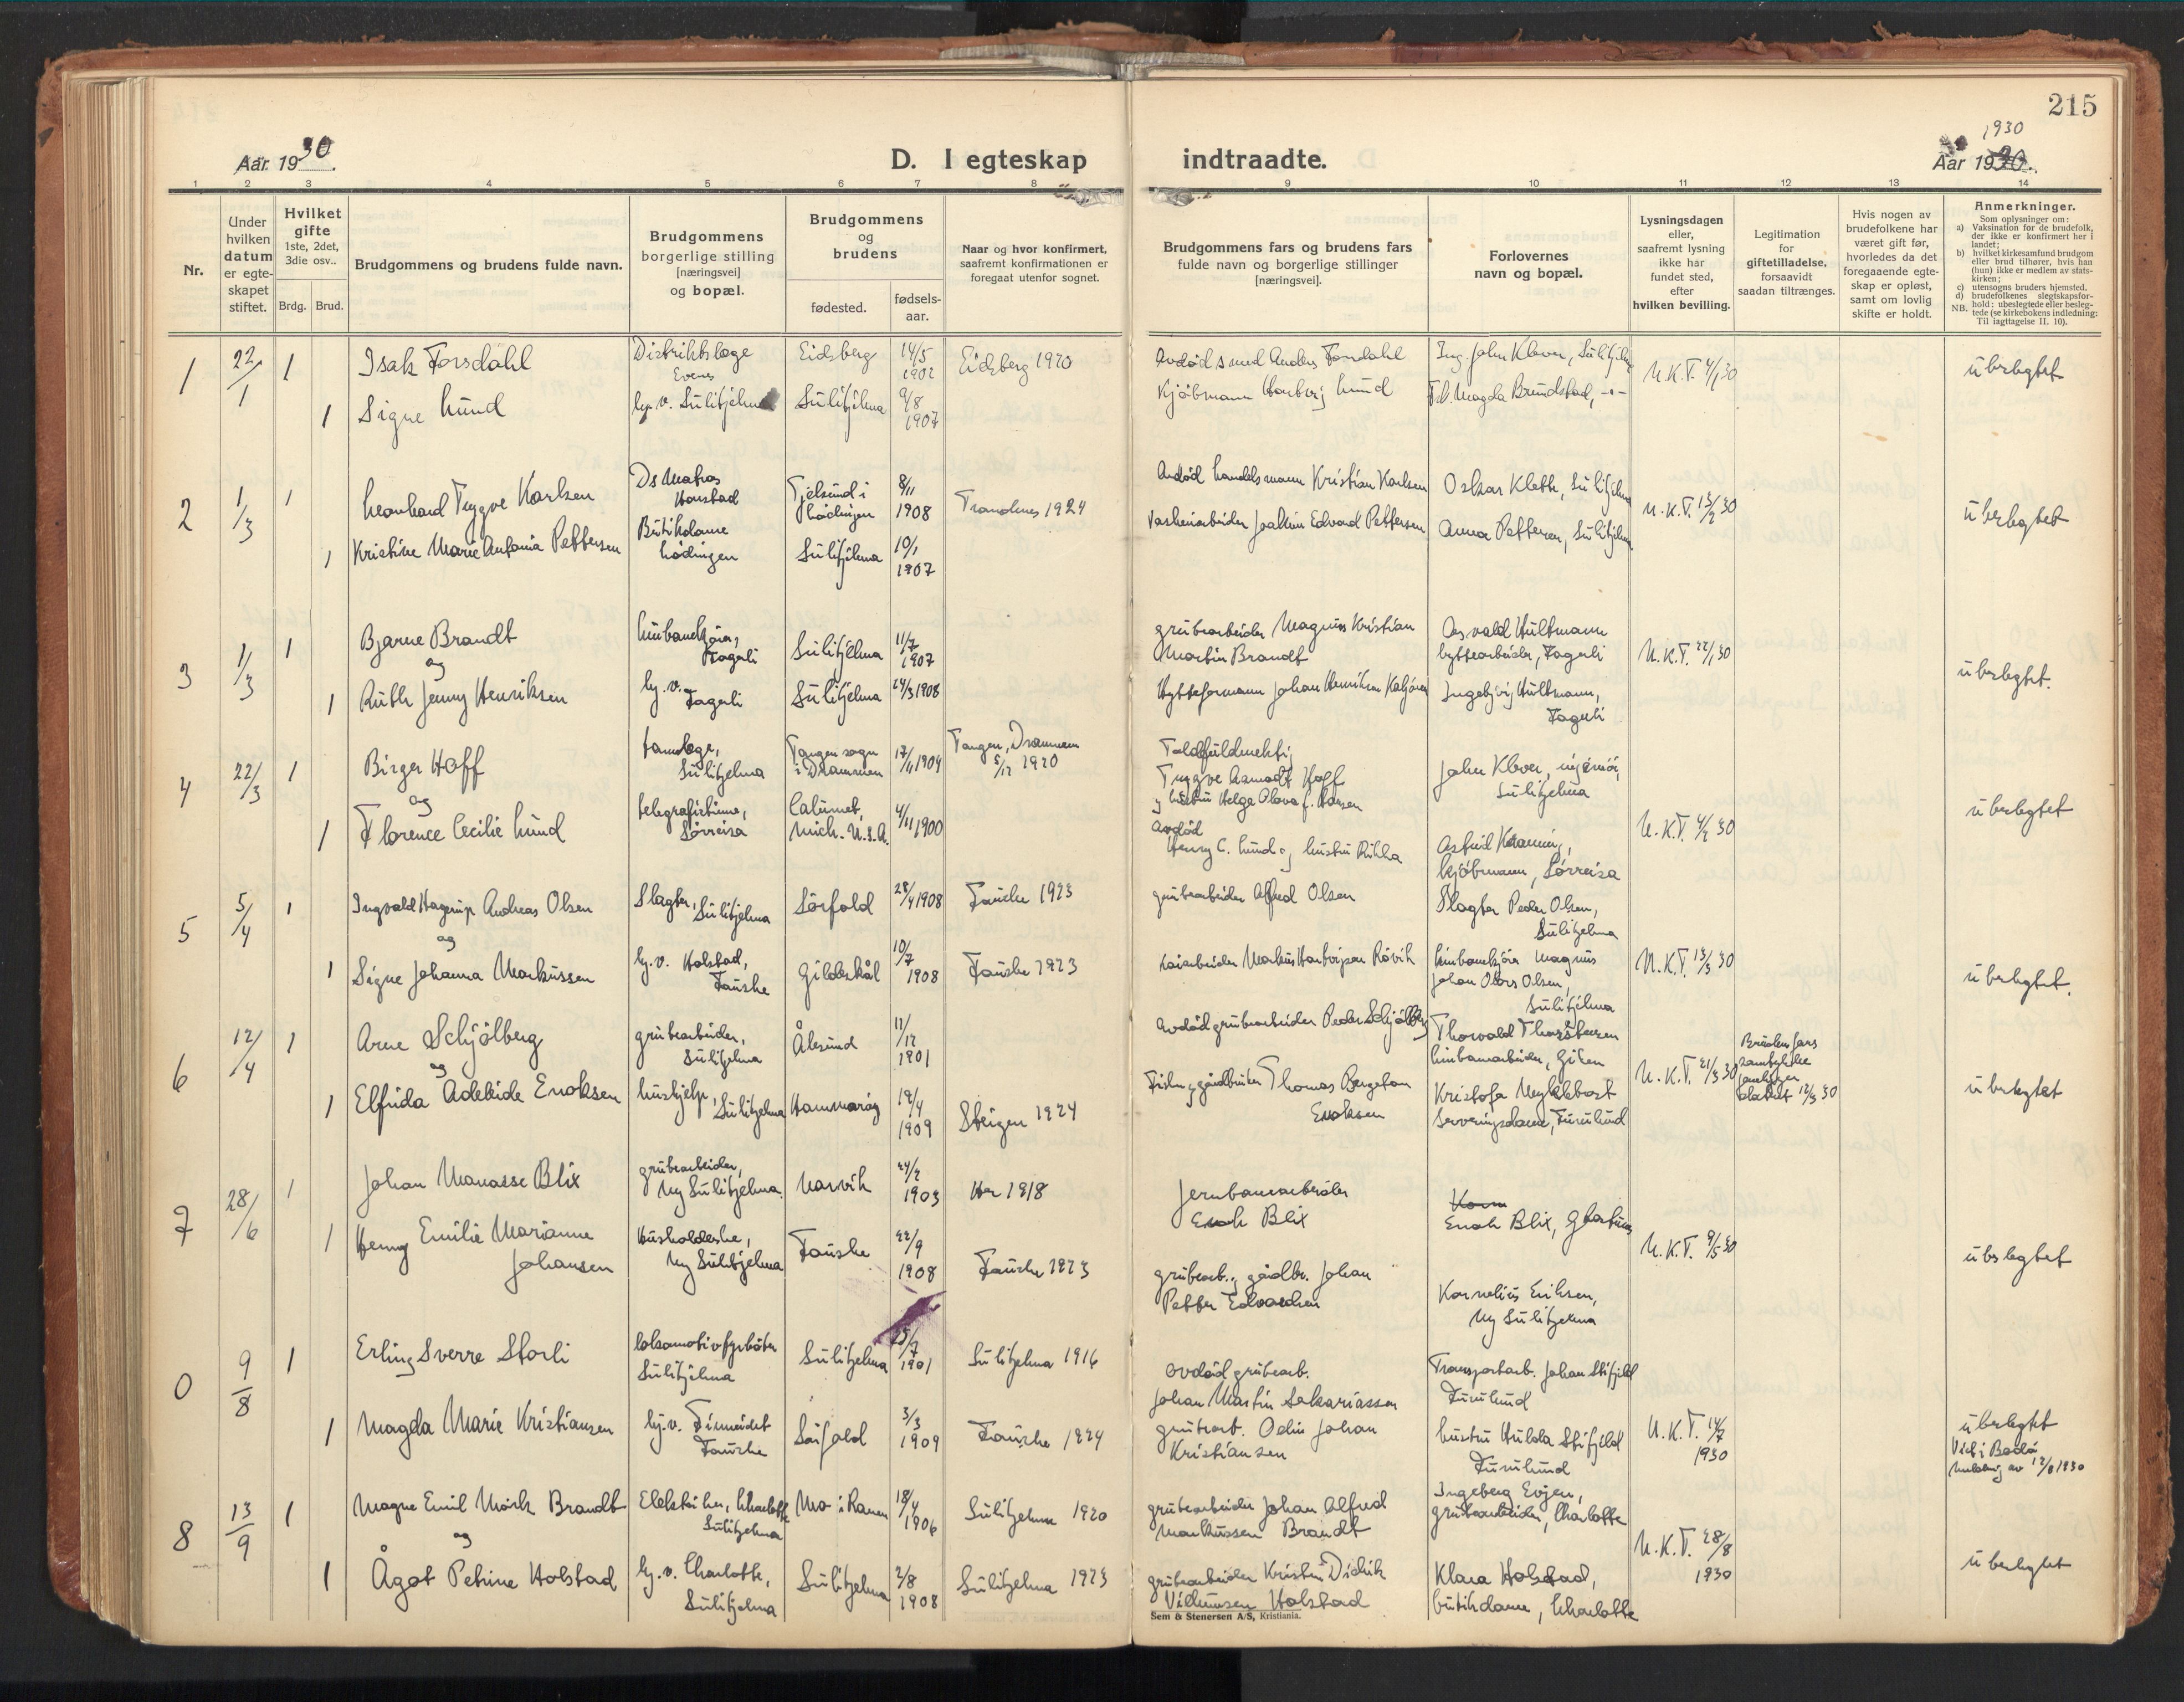 215
Aar 1930.
D. I egteskap indtraadte.
1930
Aar 1930.
1 2 3 4 5 6 7 8 9 10 11 12 13 14
Nr.
Under hvilken datum er egteskapet stiftet.
Hvilket gifte
1ste, 2det, 3die osv..
Brdg. Brud.
Brudgommens og brudens fulde navn.
Brudgommens borgerlige stilling [næringsvei] og bopæl.
Brudgommens og brudens
fødested.
fødsels-aar.
Naar og hvor konfirmert, saafremt konfirmationen er foregaat utenfor sognet.
Brudgommens fars og brudens fars fulde navn og borgerlige stillinger [næringsvei].
Forlovernes navn og bopæl.
Lysningsdagen eller, saafremt lysning ikke har fundet sted, efter hvilken bevilling.
Legitimation for giftetilladelse, forsaavidt saadan tiltrænges.
Hvis nogen av brudefolkene har været gift før, hvorledes da det foregaaende egteskap er opløst, samt om lovlig skifte er holdt.
Anmerkninger.
Som oplysninger om:
a) Vaksination for de brudefolk, der ikke er konfirmert her i landet;
b) hvilket kirkesamfund brudgom eller brud tilhører, hvis han (hun) ikke er medlem av statskirken;
c) utensogns bruders hjemsted.
d) brudefolkenes slegtskapsforhold: ubeslegtede eller beslegtede (se kirkebokens indledning:
NB. Til iagttagelse II. 10).
1 22/1 1 Isak Forsdahl Distriktslæge Evenes Eidsberg 14/5 1902 Eidsberg 1920 Avdød smed Anders Forsdahl Ing. John Klever, Sulitjelma U.K.T. 4/1 30 ubeslegtet
1 Signe Lund hj. v. Sulitjelma Sulitjelma 9/8 1907 Kjøbmann Hartvig Lund Frk. Magda Brundstad, -"-
2 1/3 1 Leonhard Trygve Karlsen Ds Matros Harstad Tjelsund i Lødingen 8/11 1908 Trondenes 1924 Avdød handelsmann Kristian Karlsen Oskar Klette, Sulitjelma U.K.T. 13/2 30 ubeslegtet
1 Kristine Marie Antonia Pettersen Butikdame Lødingen Sulitjelma 10/1 1907 Vaskeriarbeider Joakim Edvard Pettersen Anna Pettersen, Sulitjelma
3 1/3 1 Bjarne Brandt Linbanekjører, Fagerli Sulitjelma 11/7 1907 grubearbeider Magnus Kristian Martin Brandt Osvald Hultmann hyttearbeider, Fagerli U.K.T. 22/1 30 ubeslegtet.
og
1 Ruth Jenny Henriksen hj. v. Fagerli Sulitjelma 24/3 1908 Hytteformann Johan Henriksen Ingebjørg Hultmann, Fagerli
4 22/3 1 Birger Hoff tannlæge, Sulitjelma Tangen sogn i Drammen 17/11 1904 Tangen, Drammen 5/12 1920 Toldfuldmektig Trygve Hoff og hustru Helga Olava f. Hansen John Klever, ingeniør, Sulitjelma U.K.T. 4/2 30 ubeslegtet
og
1 Florence Cecilie Lund telegrafistinne, Sørreisa Calumet, Mich. U.S.A. 4/11 1900 avdød Henry C. Lund og hustru Astrid kjøbmann, Sørreisa
5 5/4 1 Ingvald Hagerup Andreas Olsen Slagter, Sulitjelma Sørfold 28/4 1908 Fauske 1923 grubearbeider Alfred Olsen Slagter Peder Olsen, Sulitjelma
og
1 Signe Johanna Markussen hj. v. Holstad, Fauske Gildeskål 10/7 1908 Fauske 1923 kaiarbeider Markus Hartvigsen Røvik Linbanekjører Magnus Johan Olsen, Sulitjelma U.K.T. 13/3 30 ubeslegtet.
6 12/4 1 Arne Schjølberg grubearbeider, Sulitjelma Ålesund 11/12 1901 Avdød grubearbeider Peder Schjølberg Thorvald Thorstensen linbanearbeider, Giken U.K.T. 21/3 30 Brudens fars samtykke datert 12/3 30 ubeslegtet
og
1 Elfrida Adeleide Enoksen hushjelp, Sulitjelma Hammarøy 19/4 1909 Steigen 1924 Fisker og gårdbruker Thomas Bergeton Enoksen Kristofa Myklebost serveringsdame, Furulund
7 28/6 1 Johan Manasse Blix grubearbeider, Ny Sulitjelma. Narvik 24/2 1903 Her 1918 Jernbanearbeider Enok Blix Enok Blix, U.K.T. 9/5 30 ubeslegtet
1 Henny Emilie Marianne Johansen Husholderske, Ny Sulitjelma Fauske 22/9 1908 Fauske 1923 grubearb. og gårdbr. Johan Petter Edvardsen Kornelius Eriksen, Ny Sulitjelma
0 9/8 1 Erling Sverre Storli lokomotivfyrbøter Sulitjelma Sulitjelma 25/7 1901 Sulitjelma 1916 avdød grubearb. Johan Martin Sakariassen Transportarb. Johan Stifjeld Furulund
1 Magda Marie Kristiansen hj. v. Finneidet Fauske Sørfold 3/3 1909 Fauske 1924 grubearb. Odin Johan Kristiansen hustru Hulda Stifjeld Furulund U.K.T. 14/7 1930 ubeslegtet Viet i Bodø melding av 12/8 1930
8 13/9 1 Magne Emil Mørk Brandt Elektriker, Charlotte Sulitjelma Mo i Ranen 18/4 1906 Sulitjelma 1920 grubearbeider Johan Alfred Markussen Brandt Ingeberg Evjen, grubearbeider, Charlotte U.K.T. 28/8 1930 ubeslegtet
og
1 Ågot Petrine Holstad hj. v. Charlotte, Sulitjelma Sulitjelma 2/8 1908 Sulitjelma 1923 grubearbeider Kristen Didrik Villumsen Holstad Klara Holstad, butikdame, Charlotte
Sem & Stenersen A/S, Kristiania.